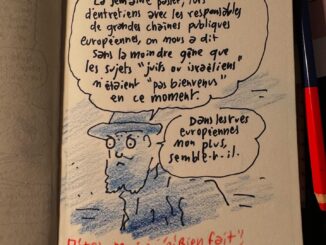 La semaine passée, lors
d'entretiens avec les responsables
de grandes chaînes publiques
européennes, on nous a dit
sans la moindre gêne que
les sujets "juifs ou israéliens"
n'étaient "pas bienvenus"
en ce moment.
Dans les rues
européennes
non plus,
semble-t-il.
"Bien fait"